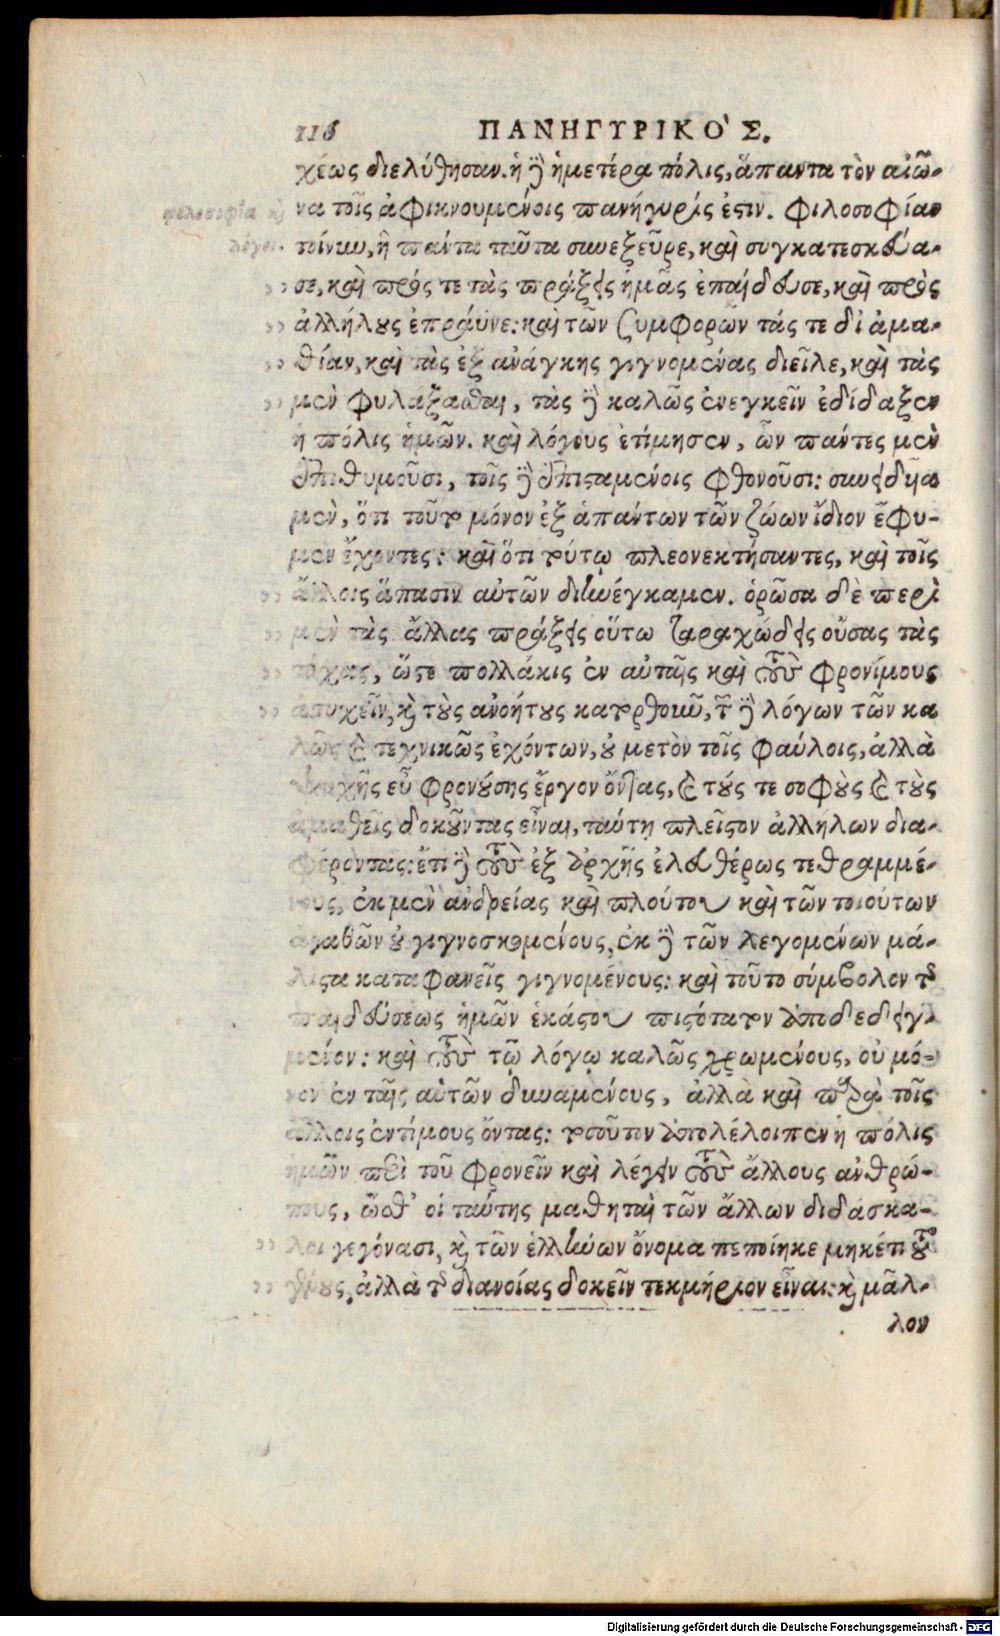 116 ΠΑΝΗΓΥΡΙΚΟ'Σ.
χέως διελύθησαν. ἡ δὲ ἡμετέρα πόλις, ἅπαντα τὸν αἰῶ-
να τοῖς ἀφικνουμένοις πανήγυρίς ἐστιν. φιλοσοφίαν
φιλοσοφία καὶ
λόγοι.
τοίνυν, ἣ πάντα ταῦτα συνεξεῦρε, καὶ συγκατεσκεύα-
σε, καὶ πρός τε τὰς πράξεις ἡμᾶς ἐπαίδευσε, καὶ πρὸς
ἀλλήλους ἐπράϋνε: καὶ τῶν συμφορῶν τάς τε δι' ἀμα-
θίαν, καὶ τὰς ἐξ ἀνάγκης γιγνομένας διεῖλε, καὶ τὰς
μὲν φυλάξασθαι, τὰς δὲ καλῶς ἐνεγκεῖν ἐδίδαξεν
ἡ πόλις ἡμῶν. καὶ λόγους ἐτίμησεν, ὧν πάντες μὲν
ἐπιθυμοῦσι, τοῖς δὲ ἐπισταμένοις φθονοῦσι: συνειδυῖα
μὲν, ὅτι τοῦτο μόνον ἐξ ἁπάντων τῶν ζώων ἴδιον ἔφυ-
μεν ἔχοντες: καὶ ὅτι τούτῳ πλεονεκτήσαντες, καὶ τοῖς
ἄλλοις ἅπασιν αὐτῶν διηνέγκαμεν. ὁρῶσα δὲ περὶ
μὲν τὰς ἄλλας πράξεις οὕτω ταραχώδεις οὔσας τὰς
τύχας, ὥστε πολλάκις ἐν αὐταῖς καὶ τοὺς φρονίμους
ἀτυχεῖν, καὶ τοὺς ἀνοήτους κατορθοῦν, τῶν δὲ λόγων τῶν κα
λῶς καὶ τεχνικῶς ἐχόντων, οὐ μετὸν τοῖς φαύλοις, ἀλλὰ
ψυχῆς εὖ φρονούσης ἔργον ὄντας, καὶ τούς τε σοφοὺς καὶ τοὺς
ἀμαθεῖς δοκοῦντας εἶναι, ταύτῃ πλεῖστον ἀλλήλων δια-
φέροντας: ἔτι δὲ τοὺς ἐξ ἀρχῆς ἐλευθέρως τεθραμμέ-
νους, ἐκ μὲν ἀνδρείας καὶ πλούτου καὶ τῶν τοιούτων
ἀγαθῶν οὐ γιγνοσκομένους, ἐκ δὲ τῶν λεγομένων μά-
λιστα καταφανεῖς γιγνομένους: καὶ τοῦτο σύμβολον τῆς
παιδεύσεως ἡμῶν ἑκάστου πιστότατον ἀποδεδειγ-
μένον: καὶ τοὺς τῷ λόγῳ καλῶς χρωμένους, οὐ μό-
νον ἐν ταῖς αὑτῶν δυναμένους, ἀλλὰ καὶ παρὰ τοῖς
ἄλλοις ἐντίμους ὄντας: τοσοῦτον ἀπολέλοιπεν ἡ πόλις
ἡμῶν περὶ τοῦ φρονεῖν καὶ λέγειν τοὺς ἄλλους ἀνθρώ-
πους, ὥσθ' οἱ ταύτης μαθηταὶ τῶν ἄλλων διδάσκα-
λοι γεγόνασι, καὶ τῶν ἑλλήνων ὄνομα πεποίηκε μηκέτι τοῦ
γένους, ἀλλὰ τῆς διανοίας δοκεῖν τεκμήριον εἶναι: καὶ μᾶλ-
λον
Digitalisierung gefördert durch die Deutsche Forschungsgemeinschaft - DFG